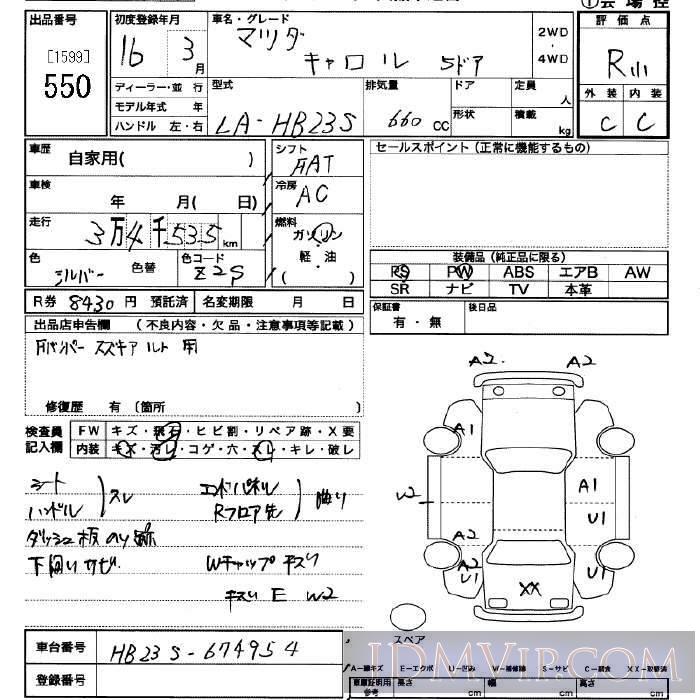 出品番号
[1599]
550
初度登録年月
16 3月
車名・グレード
マツダ
キャロル 5ドア
2WD
・
4WD
評価点
R
外装 内装
C C
ディーラー・並 行
モデル年式 年
ハンドル 左・右
型式
LA-HB23S
排気量
660 CC
ドア
形状
定員
人
積載
kg
車歴
自家用( )
シフト
FAT
車検
年 月( 日)
冷房
AC
走行
3万4千535km
燃料
ガソリン
・
軽・油
( )
色
シルバー
色替
色コード
Z2S
セールスポイント(正常に機能するもの)
装備品(純正品に限る)
PS PW ABS エアB AW
SR ナビ TV 本革
R券 8430 円 預託済
名変期限 月 日
保証書
有・無
後日品
出品店申告欄 (不良内容・欠品・注意事項等記載)
Fバンパー スズキアルト用
修復歴 有 〔箇所 〕
検査員
記入欄
FW キズ・飛石・ヒビ割・リペア跡・X要
内装 キズ・汚レ・コゲ・穴・スレ・キレ・破レ
シート
ハンドル
スレ
エンドパネル
Rフロア先
曲り
ダッシュ板のり跡
下回りサビ
Wキャップキズ
E W2
A2 A2
A1
A1
W2
U1
A2
A2
U1
XX
U1
スペア
車台番号
HB23S-674954
登録番号
A-線キズ E-エクボ U-凹み W-補修跡 S-サビ C-腐食 XX-交換済
車庫証明用
参考
長さ cm
幅 cm
高さ cm
JU